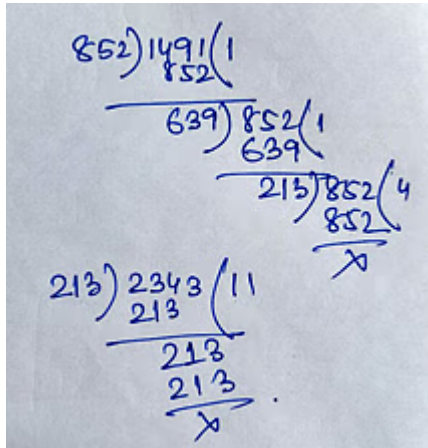 852)1491(1
852
639)852(1
639
213)852(4
852
x
213)2343(11
213
213
213
x .